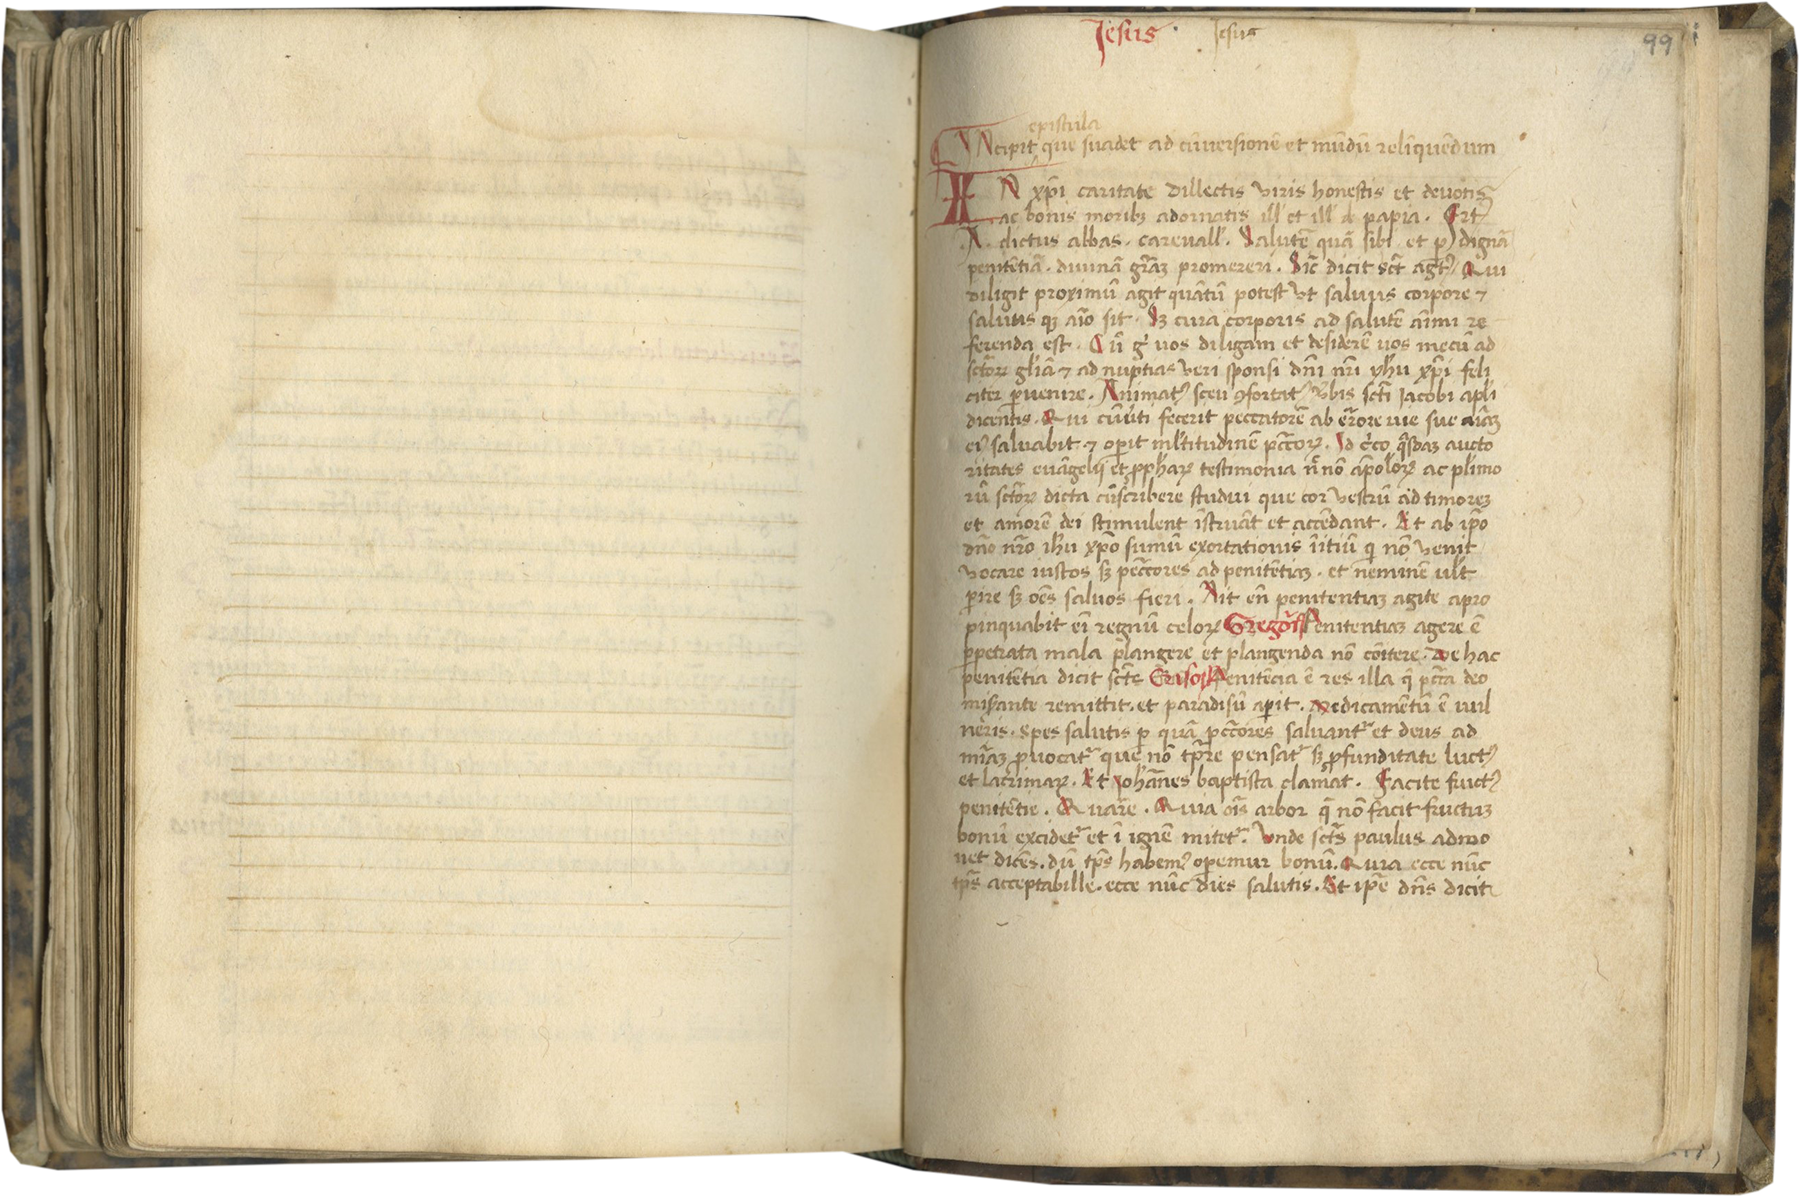 Jesus · Jesus
99
epistula
INcipit que suadet ad cūversionē et mūdū relīquēdum
IN xp̄i caritate dillectis viris honestis et devotis
ac bonis moribꝫ adornatis ill' et ill' de papia . Frt᷒
A. dictus abbas . carevall'. Salutē quā sibi . et p dignā
penitētiā . divinā gr̄aꝫ promereri . Sic̄ dicit sct̄ agt᷒ Qui
diligit proximū agit quātū potest vt salvus corpore ⁊
salutis qꝫ aīo sit . Sꝫ cura corporis ad salutē aīmi re
ferenda est . Cū g̊ vos diligam et desiderē vos mecū ad
sctōꝝ gl̄iā ⁊ ad nuptias veri sponsi dn̄i nr̄i yh̄u xp̄i feli
citer p̄venire . Animat᷒ sceu ꝯfortat᷒ v̄bis sct̄i Jacobi apl̄i
dicentis . Qui cūv̄ti fecerit peccatorē ab errore vie sue aīaꝫ
ei᷒ salvabit ⁊ op̄it ml̄titudinē pctōꝝ . Id c̄co q̄sdaꝫ aucto
ritates evāgelij et p̄phaꝝ testimonia n̄ nō ap̄oloꝝ ac pl̄imo
rū sctōꝝ dicta cūscribere studui que cor vestrū ad timoreꝫ
et amorē dei stimulent īstruāt et accēdant . Et ab ip̄o
dn̄o nr̄o ih̄u xp̄o sumū exortationis īitiū q̄ nō venit
vocare iustos sꝫ pec̄tores ad penitētiaꝫ . et neminē vult
p̄ire sꝫ oēs salvos fieri . Ait en̄ penitentiaꝫ agite apro
pinquabit eī regnū celoꝝ Gregoꝛ᷒ Penitentiaꝫ agere ē
ꝑpetrata mala plangere et plangenda nō cōitere . De hac
penitētia dicit sct̄e Crisos᷒ Penitēcia ē res illa q̄ pct̄a deo
mis̄ante remittit . et paradisū ap̄it . Medicamētū ē vul
neris . spes salutis p quā pctōres salvant᷑ et deus ad
mīaꝫ p̄vocat᷑ que nō tp̄re pensat᷑ sꝫ p̄funditate luct᷒
et lacrimaꝝ . Et Johānes baptista clamat . Facite fruct᷒
penitētie . Quare . Quia oīs arbor q̄ nō facit fructuꝫ
bonū excidet᷑ et ī ignē mitet᷑ . Unde sct̄s paulus admo
net dicēs . dū tp̄s habem᷒ op̄emur bonū . Quia ecce nūc
tp̄s acceptabille . ecce nūc dies salutis . Et ip̄e dn̄s dicit